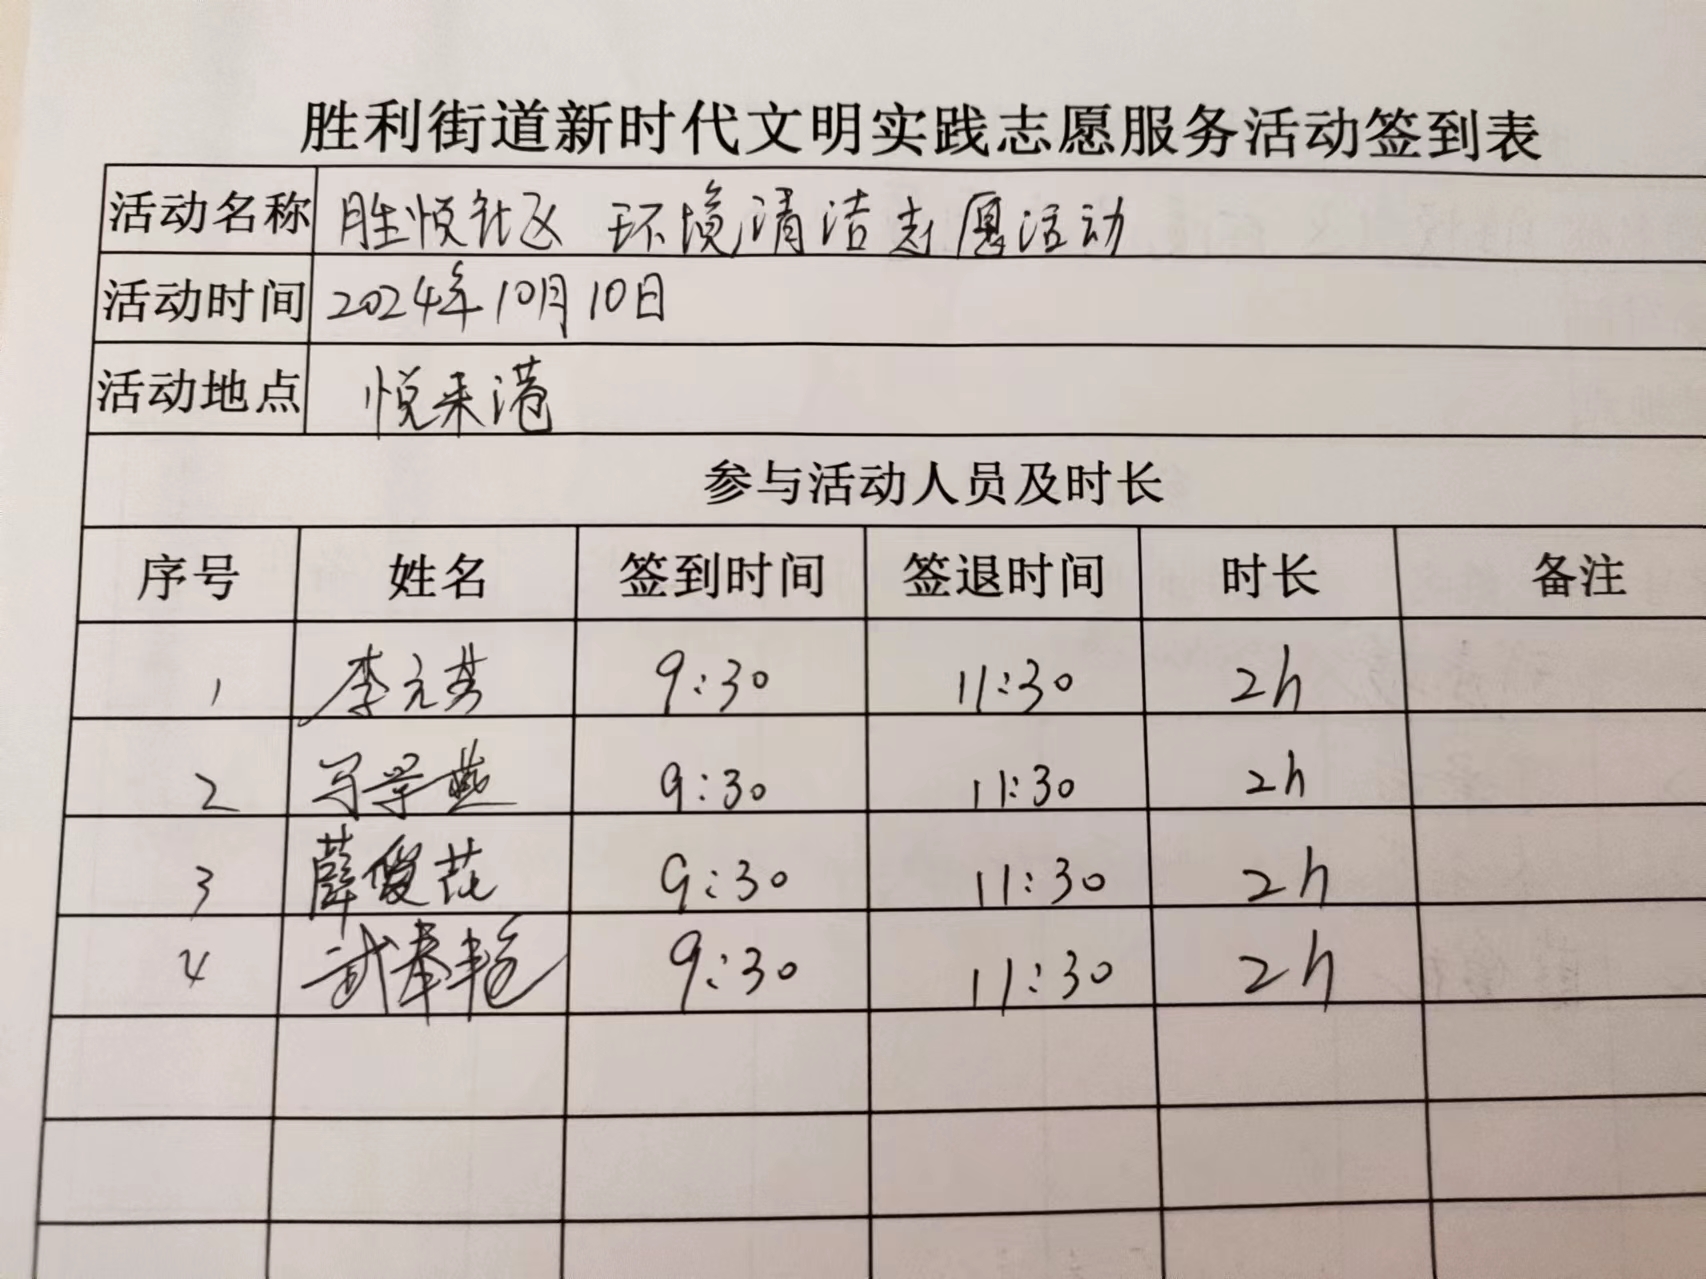 胜利街道新时代文明实践志愿服务活动签到表
活动名称 胜悦社区 环境清洁志愿活动
活动时间 2024年10月10日
活动地点 悦来港
参与活动人员及时长
序号 姓名 签到时间 签退时间 时长 备注
1 李元芳 9:30 11:30 2h
2 燕 9:30 11:30 2h
3 薛俊花 9:30 11:30 2h
4 武春艳 9:30 11:30 2h